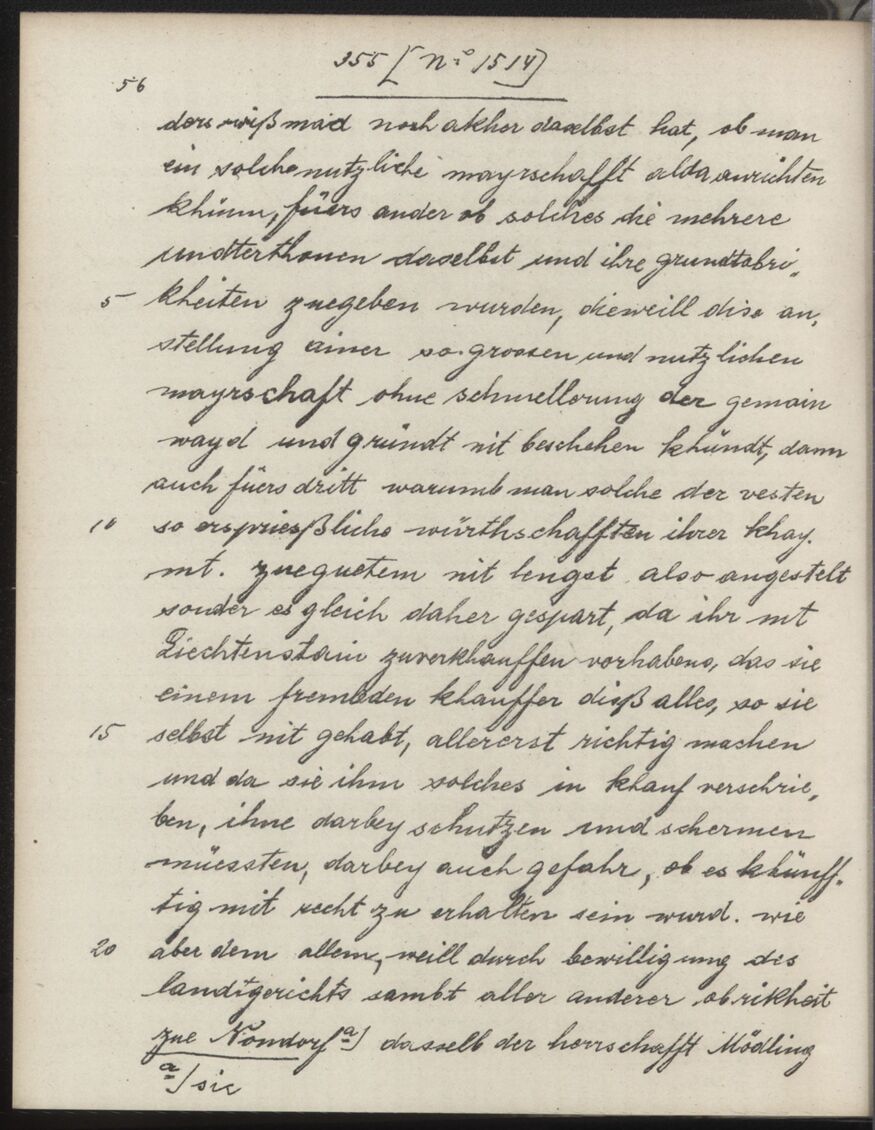 355 [N.o 1514]
56
ders wißmad noch akher daselbst hat, ob man
ein solche nutzliche mayrschafft alda anrichten
khünn, füers ander ob solches die mehrere
undterthonen daselbst und ihre grundtobri„
5 kheiten zuegeben wurden, dieweill dise an„
stellung einer so groosen und nutzlichen
mayrschaft ohne schmellerung der gemain
wayd und gründt nit beschehen khündt, dann
auch füers dritt warumb man solche der vesten
10 so erspriesßliche würthschafften ihrer khay.
mt. zueguetem nit lengst also angestelt
sonder es gleich daher gespart, da ihr mt
Liechtenstain zuverkhauffen vorhabens, das sie
einem frembden khauffer diß alles, so sie
15 selbst nit gehabt, allererst richtig machen
und da sie ihm solches in khauf verschrie„
ben, ihne darbey schutzen und schermen
müessten, darbey auch gefahr, ob es khünff„
tig mit recht zu erhalten sein wurd. wie
20 aber dem allem, weill durch bewilligung des
landtgerichts sambt aller anderer obrikheit
zue Nondorf a) dasselb der herrschafft Mödling
a) sic